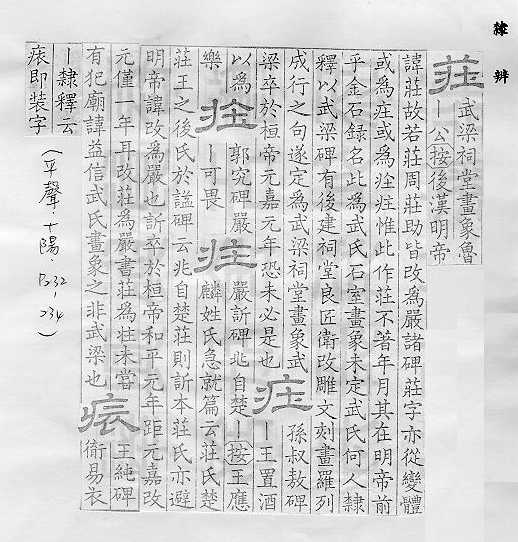 隸辨
莊
武梁祠堂畫象魯
丨公按後漢明帝
諱莊故若莊周莊助皆改為嚴諸碑莊字亦從變體
或為庄或為疰惟此作莊不著年月其在明帝前
乎金石録名此為武氏石室畫象未定武氏何人隸
釋以武梁碑有後建祠堂良匠衛改雕文刻畫羅列
成行之句遂定為武梁祠堂畫象武
梁卒於桓帝元嘉元年恐未必是也
疰
孫叔敖碑
丨王置酒
以為
樂
郭究碑嚴
丨可畏
疰
嚴訢碑兆自楚丨按王應
麟姓氏急就篇云莊氏楚
莊王之後氏於謚碑云兆自楚莊則訢本莊氏亦避
明帝諱改為嚴也訢卒於桓帝和平元年距元嘉改
元僅一年耳改莊為嚴書莊為疰未嘗
有犯廟諱益信武氏畫象之非武梁也
王純碑
衛易衣
丨隸釋云
即裝字
(平聲·十陽·P.232-234)